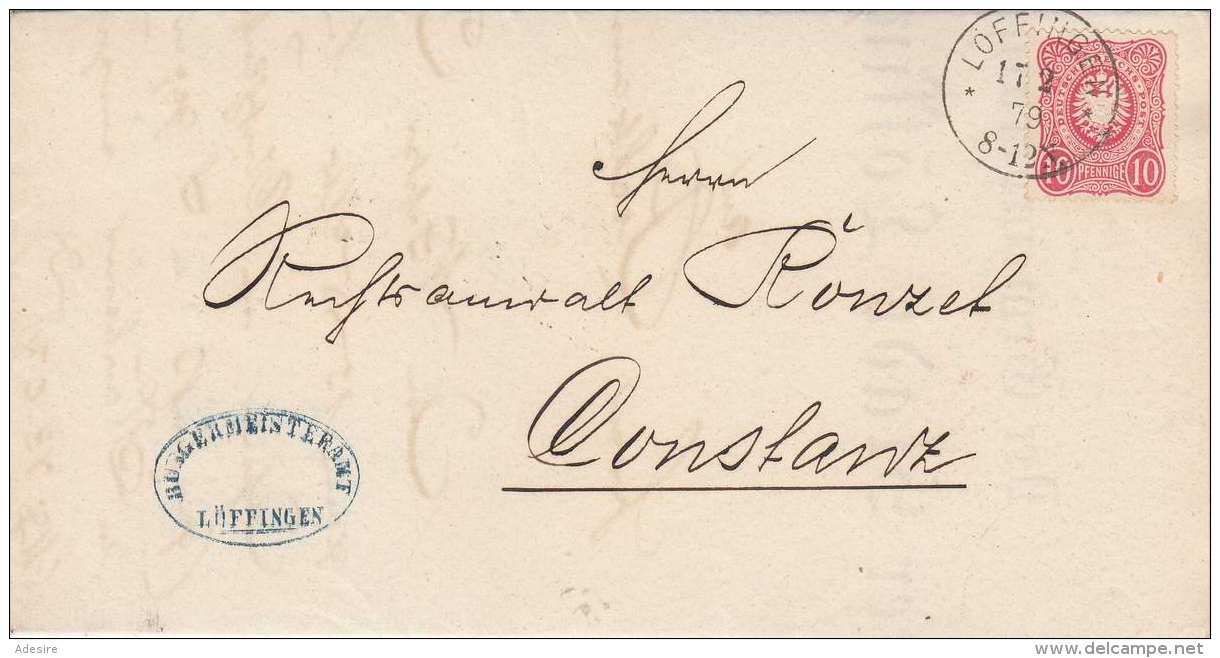 LÖFFINGEN
17 2
79
8-12
DEUTSCHE REICHS-POST
10 PFENNIGE 10
Herrn
Rechtsanwalt Ronzet
Constanz
BURGERMEISTERAMT
LÖFFINGEN
Adesire
delcampe.net